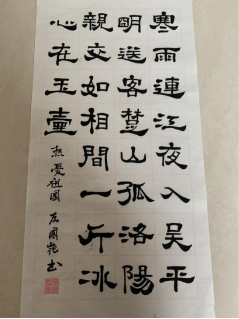 寒雨連江夜入吳平
明送客楚山孤洛陽
親友如相間一片冰
心在玉壺
热愛祖國 國书